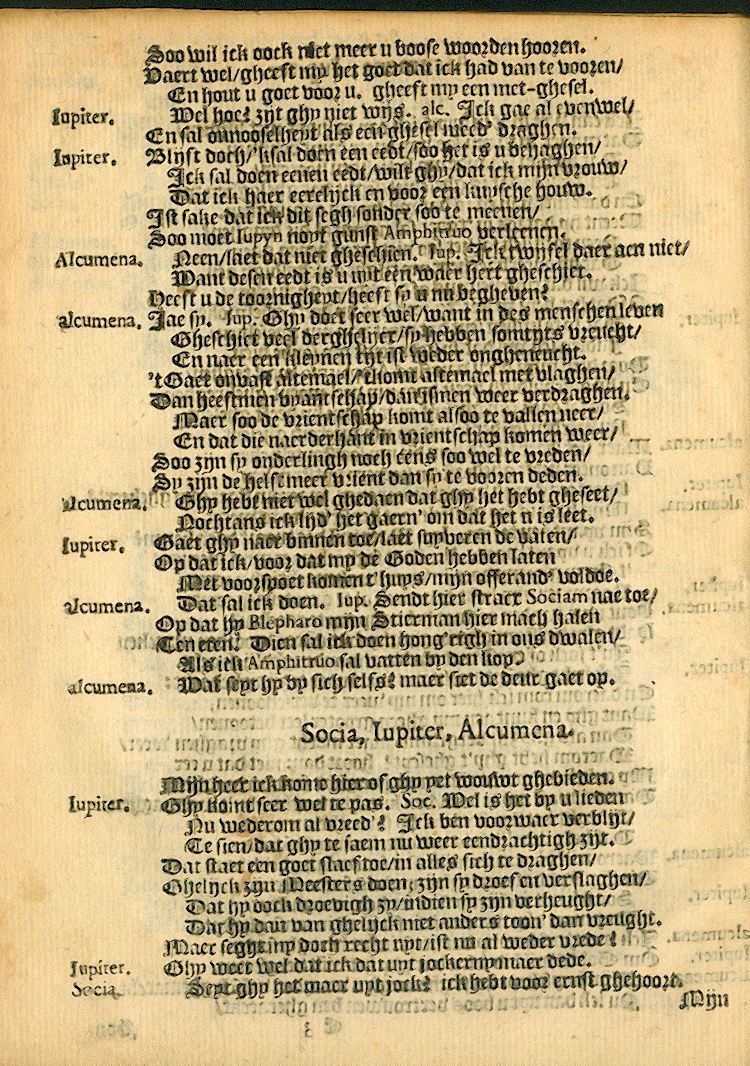 Soo wil ick oock niet meer u boose woorden hooren.
Vaert wel/gheeft my het goet dat ick had van te vooren/
En hout u goet voor u. gheeft my een met-ghesel.
Iupiter. Wel hoe? zijt ghy niet wijs. alc. Ick gae al evenwel/
En sal onnooselheyt als een ghesel meed' draghen.
Iupiter. Blijft doch/'ksal doen een eedt/soo het is u behaghen/
Ick sal doen eenen eedt/wilt ghy/dat ick mijn vrouw/
Dat ick haer eerelijck en voor een kuysche houw.
Ist sake dat ick dit segh sonder soo te meenen/
Soo moet Iupyn noyt gunst Amphitruo verleenen.
Alcumena. Neen/laet dat niet gheschien. Iup. Ick twijfel daer aen niet/
Want desen eedt is u uyt een waer hert gheschiet.
Heeft u de toornigheyt/heeft sy u nu begheven?
alcumena. Jae sy. Iup. Ghy doet seer wel/want in des menschen leven
Gheschiet veel derghelijcx/sy hebben somtijts vreucht/
En naer een kleynen tijt ist weder ongheneucht.
't Gaet onvast altemael/'tkomt altemael met vlaghen/
Dan heeftmen vyantschap/dan ismen weer verdraghen.
Maer soo de vrientschap komt alsoo te vallen neer/
En dat die naerderhant in vrientschap komen weer/
Soo zijn sy onderlingh noch eens soo wel te vreden/
Sy zijn de helft meer vrient dan sy te vooren deden.
alcumena. Ghy hebt niet wel ghedaen dat ghy het hebt gheseet/
Nochtans ick lijd' het gaern' om dat het u is leet.
Iupiter. Gaet ghy naer binnen toe/laet suyveren de vaten/
Op dat ick/voor dat my de Goden hebben laten
Met voorspoet komen t'huys/mijn offerand' voldoe.
alcumena. Dat sal ick doen. Iup. Sendt hier stracx Sociam nae toe/
Op dat hy Blepharo mijn Stierman hier mach halen
Ten eten. Dien sal ick doen hong'righ in ons dwalen/
Als ick Amphitruo sal vatten by den kop.
alcumena. Wat seyt hy by sich selfs? maer siet de deur gaet op.
Socia, Iupiter, Alcumena.
Mijn heer ick kome hier of ghy yet wouwt ghebieden.
Iupiter. Ghy komt seer wel te pas. Soc. Wel is het by u lieden
Nu wederom al vreed'? Ick ben voorwaer verblijt/
Te sien/dat ghy te saem nu weer eendrachtigh zijt.
Dat staet een goet slaef toe/in alles sich te draghen/
Ghelijck zijn Meesters doen; zijn sy droef en verslaghen/
Dat hy oock droevigh zy/indien sy zijn verheught/
Dat hy dan van ghelijck niet anders toon' dan vreught.
Maer seght my doch recht uyt/ist nu al weder vrede?
Iupiter. Ghy weet wel dat ick dat uyt jockerny maer dede.
Socia. Seyt ghy het maer uyt jock? ick hebt voor ernst ghehoort.
Mijn